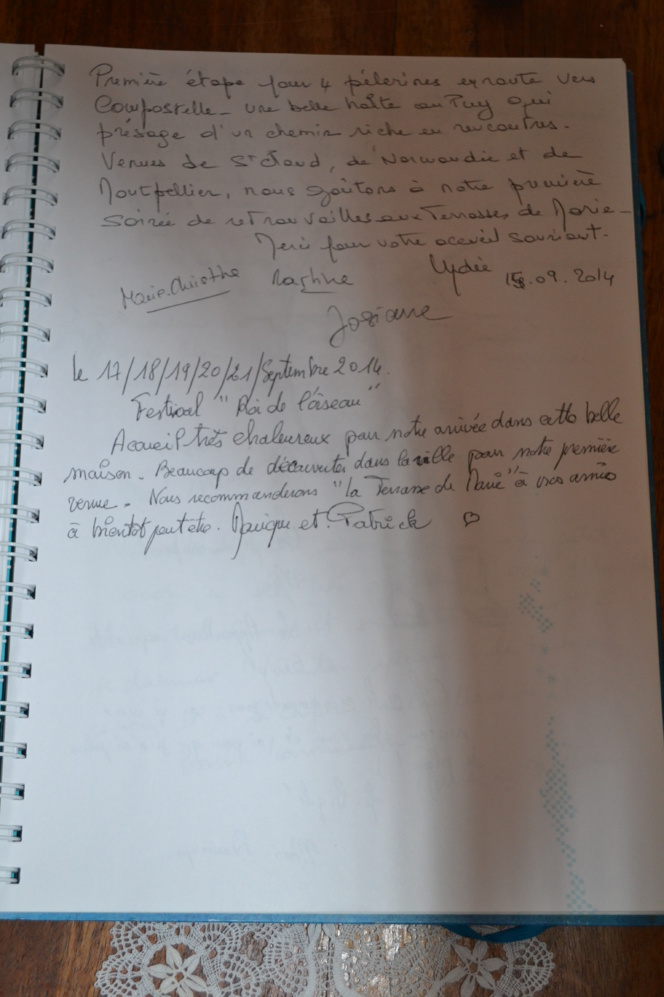 Première étape pour 4 pélerines en route vers
Compostelle - une belle halte au Puy qui
présage d'un chemin riche en rencontres.
Venues de St Cloud, de Normandie et de
Montpellier, nous goûtons à notre première
soirée de retrouvailles aux Terrasses de Marie -
Merci pour votre accueil souriant.
Marie-Christine Martine Lydie 15.09.2014
Josiane
le 17/18/19/20/21/Septembre 2014.
Festival "Roi de l'oiseau"
Accueil très chaleureux pour notre arrivée dans cette belle
maison. Beaucoup de découvertes dans la ville pour notre première
venue. Nous recommanderons "la Terrasse de Marie" à nos amis
à bientot peut être. et Patrick